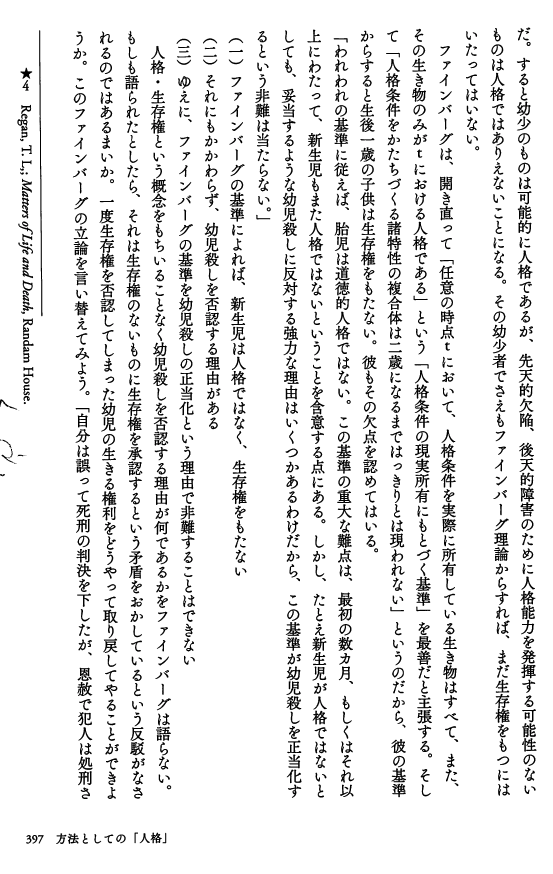 だ。すると幼少のものは可能的に人格であるが、先天的欠陥、後天的障害のために人格能力を発揮する可能性のない
ものは人格ではありえないことになる。その幼少者でさえもファインバーグ理論からすれば、まだ生存権をもつには
いたってはいない。
ファインバーグは、開き直って「任意の時点tにおいて、人格条件を実際に所有している生き物はすべて、また、
その生き物のみがtにおける人格である」という「人格条件の現実所有にもとづく基準」を最善だと主張する。そし
て「人格条件をかたちづくる諸特性の複合体は二歳になるまではっきりとは現われない」というのだから、彼の基準
からすると生後一歳の子供は生存権をもたない。彼もその欠点を認めてはいる。
「われわれの基準に従えば、胎児は道徳的人格ではない。この基準の重大な難点は、最初の数カ月、もしくはそれ以
上にわたって、新生児もまた人格ではないということを含意する点にある。しかし、たとえ新生児が人格ではないと
しても、妥当するような幼児殺しに反対する強力な理由はいくつかあるわけだから、この基準が幼児殺しを正当化す
るという非難は当たらない。」
(一)ファインバーグの基準によれば、新生児は人格ではなく、生存権をもたない
(二)それにもかかわらず、幼児殺しを否認する理由がある
(三)ゆえに、ファインバーグの基準を幼児殺しの正当化という理由で非難することはできない
人格・生存権という概念をもちいることなく幼児殺しを否認する理由が何であるかをファインバーグは語らない。
もしも語られたとしたら、それは生存権のないものに生存権を承認するという矛盾をおかしているという反駁がなさ
れるのではあるまいか。一度生存権を否認してしまった幼児の生きる権利をどうやって取り戻してやることができよ
うか。このファインバーグの立論を言い替えてみよう。「自分は誤って死刑の判決を下したが、恩赦で犯人は処刑さ
★4 Regan, T. L.; Matters of Life and Death, Randam House.
397 方法としての「人格」